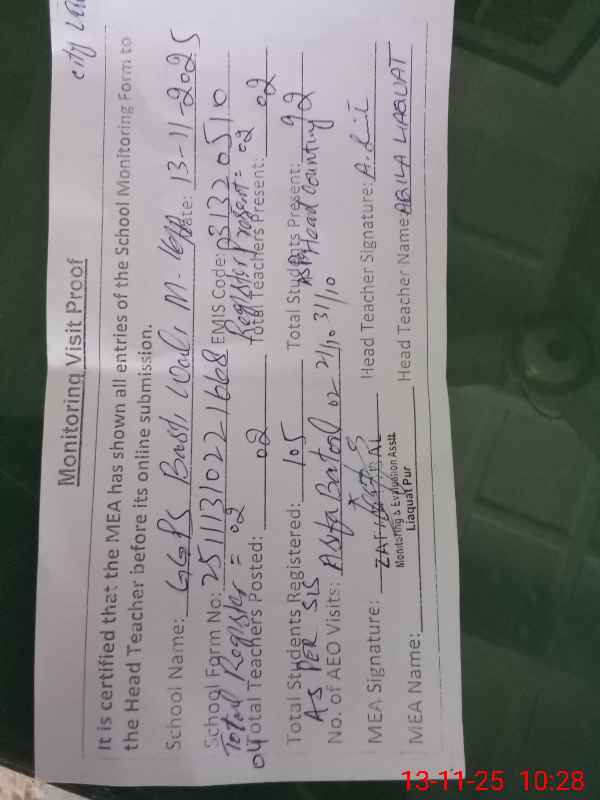 city
Monitoring Visit Proof
It is certified that the MEA has shown all entries of the School Monitoring Form to
the Head Teacher before its online submission.
School Name: GGPS Basti Wali M. Date: 13-11-2025
School Form No: 2511131022 1668 EMIS Code: 31320510
Total Register = 02 Register Present = 02
04 Total Teachers Posted: 02 Total Teachers Present: 02
Total Students Registered: 105 Total Students Present: 92
AS PER SIS As Per Head Counting
No. of AEO Visits: Batool 02 21/10 31/10
MEA Signature: Head Teacher Signature: A.
Monitoring & Evaluation Asstt.
Liaquat Pur
MEA Name: Head Teacher Name: AQILA LIAQUAT
13-11-25 10:28